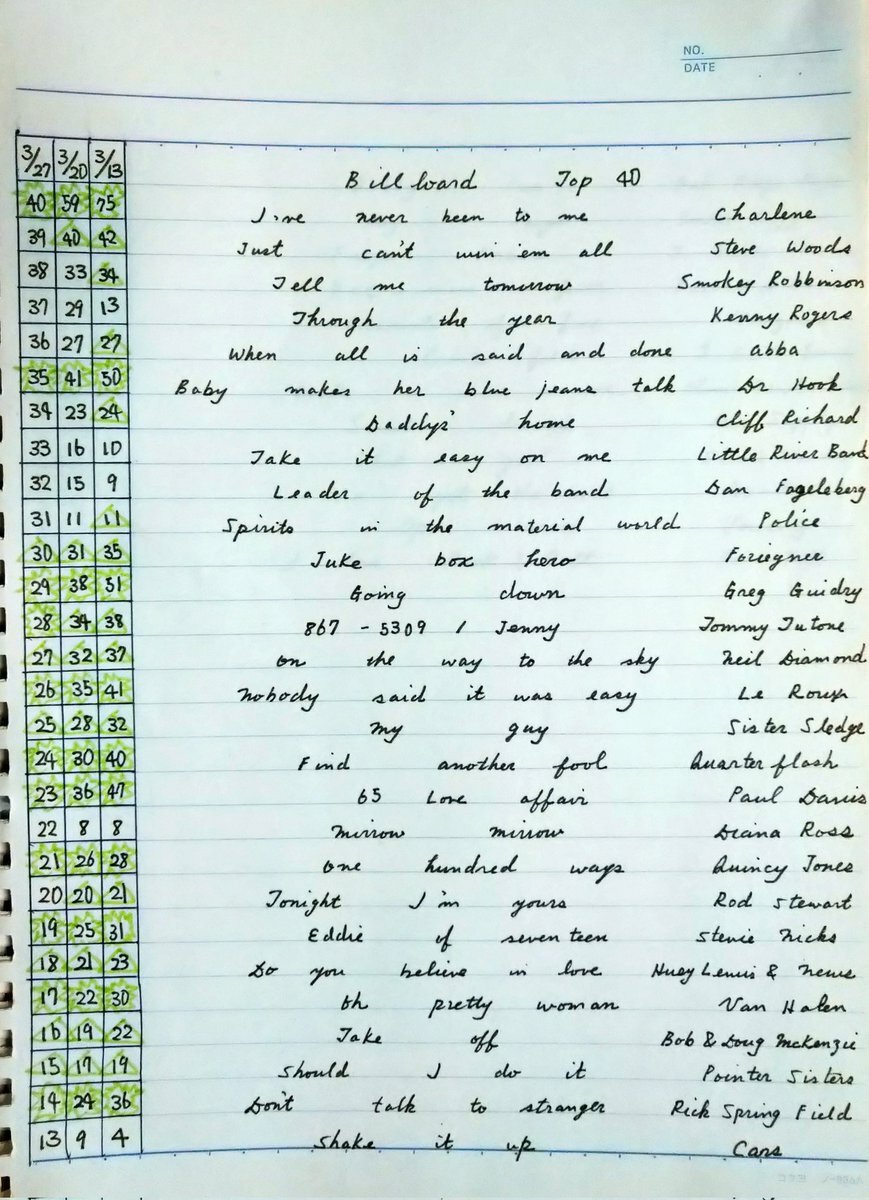 NO.
DATE
3/27 3/20 3/13 Billboard Top 40
40 59 75 I've never been to me Charlene
39 40 42 Just can't win 'em all Steve Woods
38 33 34 Tell me tomorrow Smokey Robbinson
37 29 13 Through the year Kenny Rogers
36 27 27 When all is said and done abba
35 41 50 Baby makes her blue jeans talk Dr Hook
34 23 24 Daddys' home Cliff Richard
33 16 10 Take it easy on me Little River Band
32 15 9 Leader of the band Dan Fogeleberg
31 11 11 Spirits in the material world Police
30 31 35 Juke box hero Foriegner
29 38 51 Going down Greg Guidry
28 34 38 867 - 5309 / Jenny Tommy Tutone
27 32 37 on the way to the sky Neil Diamond
26 35 41 Nobody said it was easy Le Roux
25 28 32 My guy Sister Sledge
24 30 40 Find another fool Quarter flash
23 36 47 65 Love affair Paul Davis
22 8 8 Mirrow mirrow Diana Ross
21 26 28 One hundred ways Quincy Jones
20 20 21 Tonight I'm yours Rod Stewart
19 25 31 Eddie of seventeen Stevie Nicks
18 21 23 Do you believe in love Huey Lewis & News
17 22 30 Oh pretty woman Van Halen
16 19 22 Take off Bob & Doug Mckenzie
15 17 19 Should I do it Pointer Sisters
14 24 36 Don't talk to stranger Rick Spring Field
13 9 4 Shake it up Cars